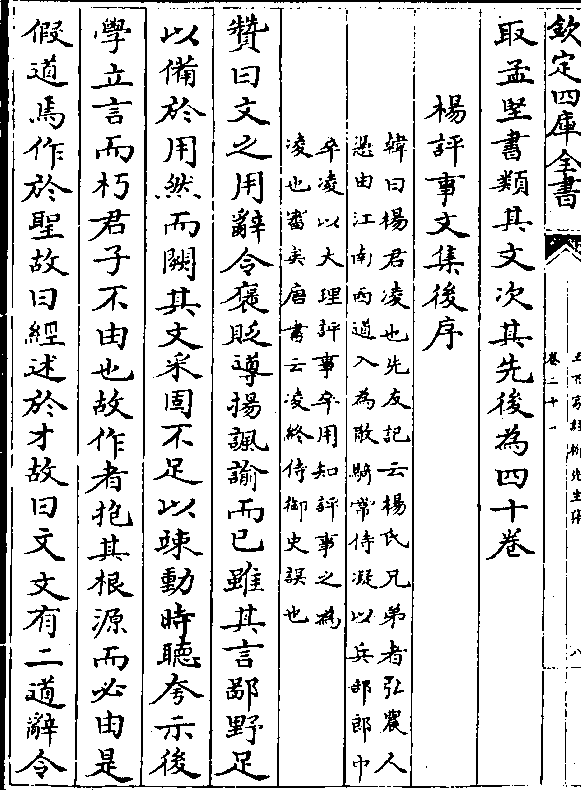 欽定四庫全書
卷二十一
八
取孟堅書類其文次其先後為四十卷
楊評事文集後序
韓曰楊君凌也先友記云楊氏兄弟者弘農人
憑由江南西道入為散騎常侍凝以兵部郎中
卒凌以大理評事卒用知評事之為
凌也審矣唐書云凌終侍御史誤也
贊曰文之用辭令褒貶導揚諷諭而已雖其言鄙野足
以備於用然而闕其文采固不足以竦動時聽夸示後
學立言而朽君子不由也故作者抱其根源而必由是
假道焉作於聖故曰經述於才故曰文文有二道辭令